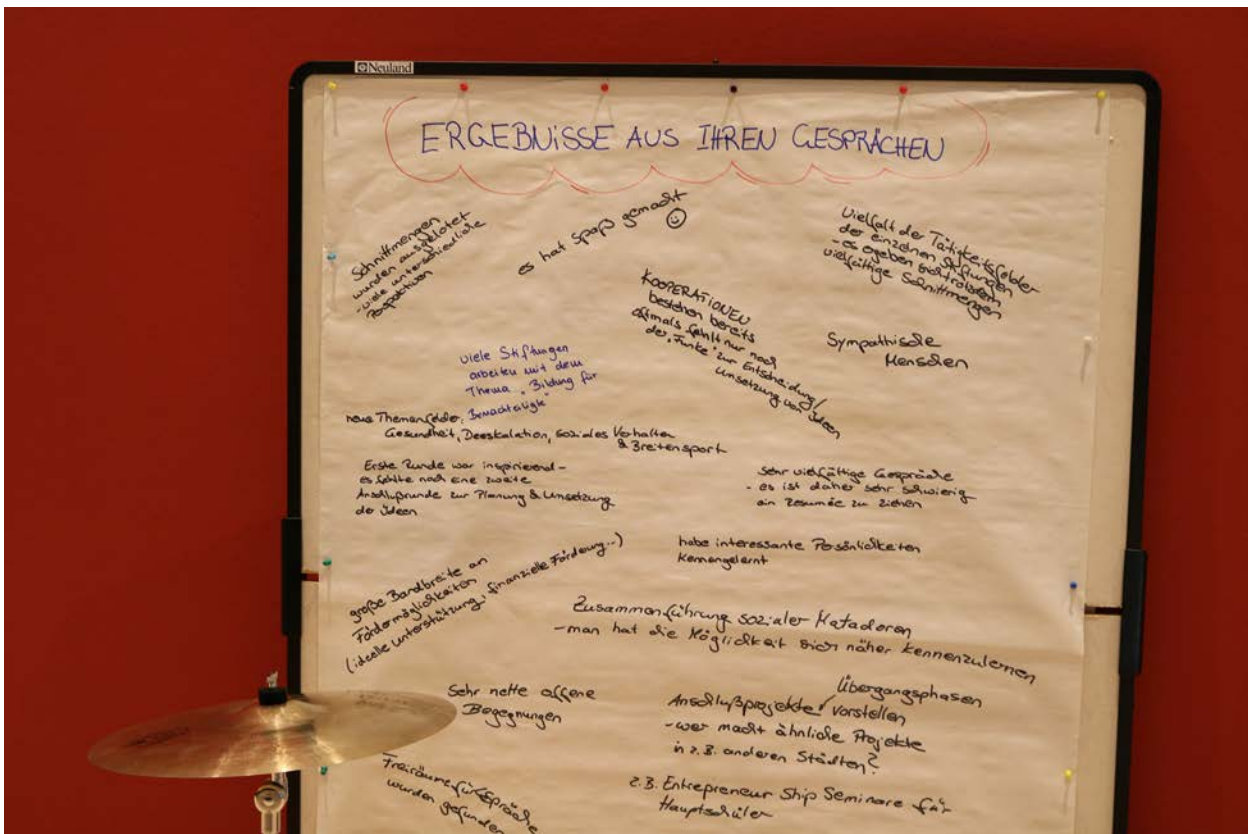 Neuland
ERGEBNISSE AUS IHREN GESPRÄCHEN
Schnittmengen
wurden ausgelotet
- viele unterschiedliche
Perspektiven
es hat Spaß gemacht
Vielfalt der Tätigkeitsfelder
der einzelnen Stiftungen
- es ergeben sich trotzdem
vielfältige Schnittmengen
KOOPERATIONEN
bestehen bereits
oftmals fehlt nur noch
der "Funke" zur Entscheidung/
Umsetzung von Ideen
Sympathische
Menschen
viele Stiftungen
arbeiten mit dem
Thema "Bildung für
Benachteiligte"
neue Themenfelder,
Gesundheit, Deeskalation, soziales Verhalten
& Breitensport
Erste Runde war inspirierend -
es fehlte noch eine zweite
Anschlußrunde zur Planung & Umsetzung
der Ideen
sehr vielfältige Gespräche
- es ist daher sehr schwierig
ein Resumée zu ziehen
habe interessante Persönlichkeiten
kennengelernt
große Bandbreite an
Fördermöglichkeiten
(ideelle Unterstützung, finanzielle Förderung...)
Zusammenführung sozialer Matadoren
- man hat die Möglichkeit sich näher kennenzulernen
Sehr nette offene
Begegnungen
Übergangsphasen
Anschlußprojekte / vorstellen
- wer macht ähnliche Projekte
in z.B. anderen Städten?
z.B. Entrepreneur Ship Seminare für
Hauptschüler
Freiräume für Gespräche
wurden gefunden